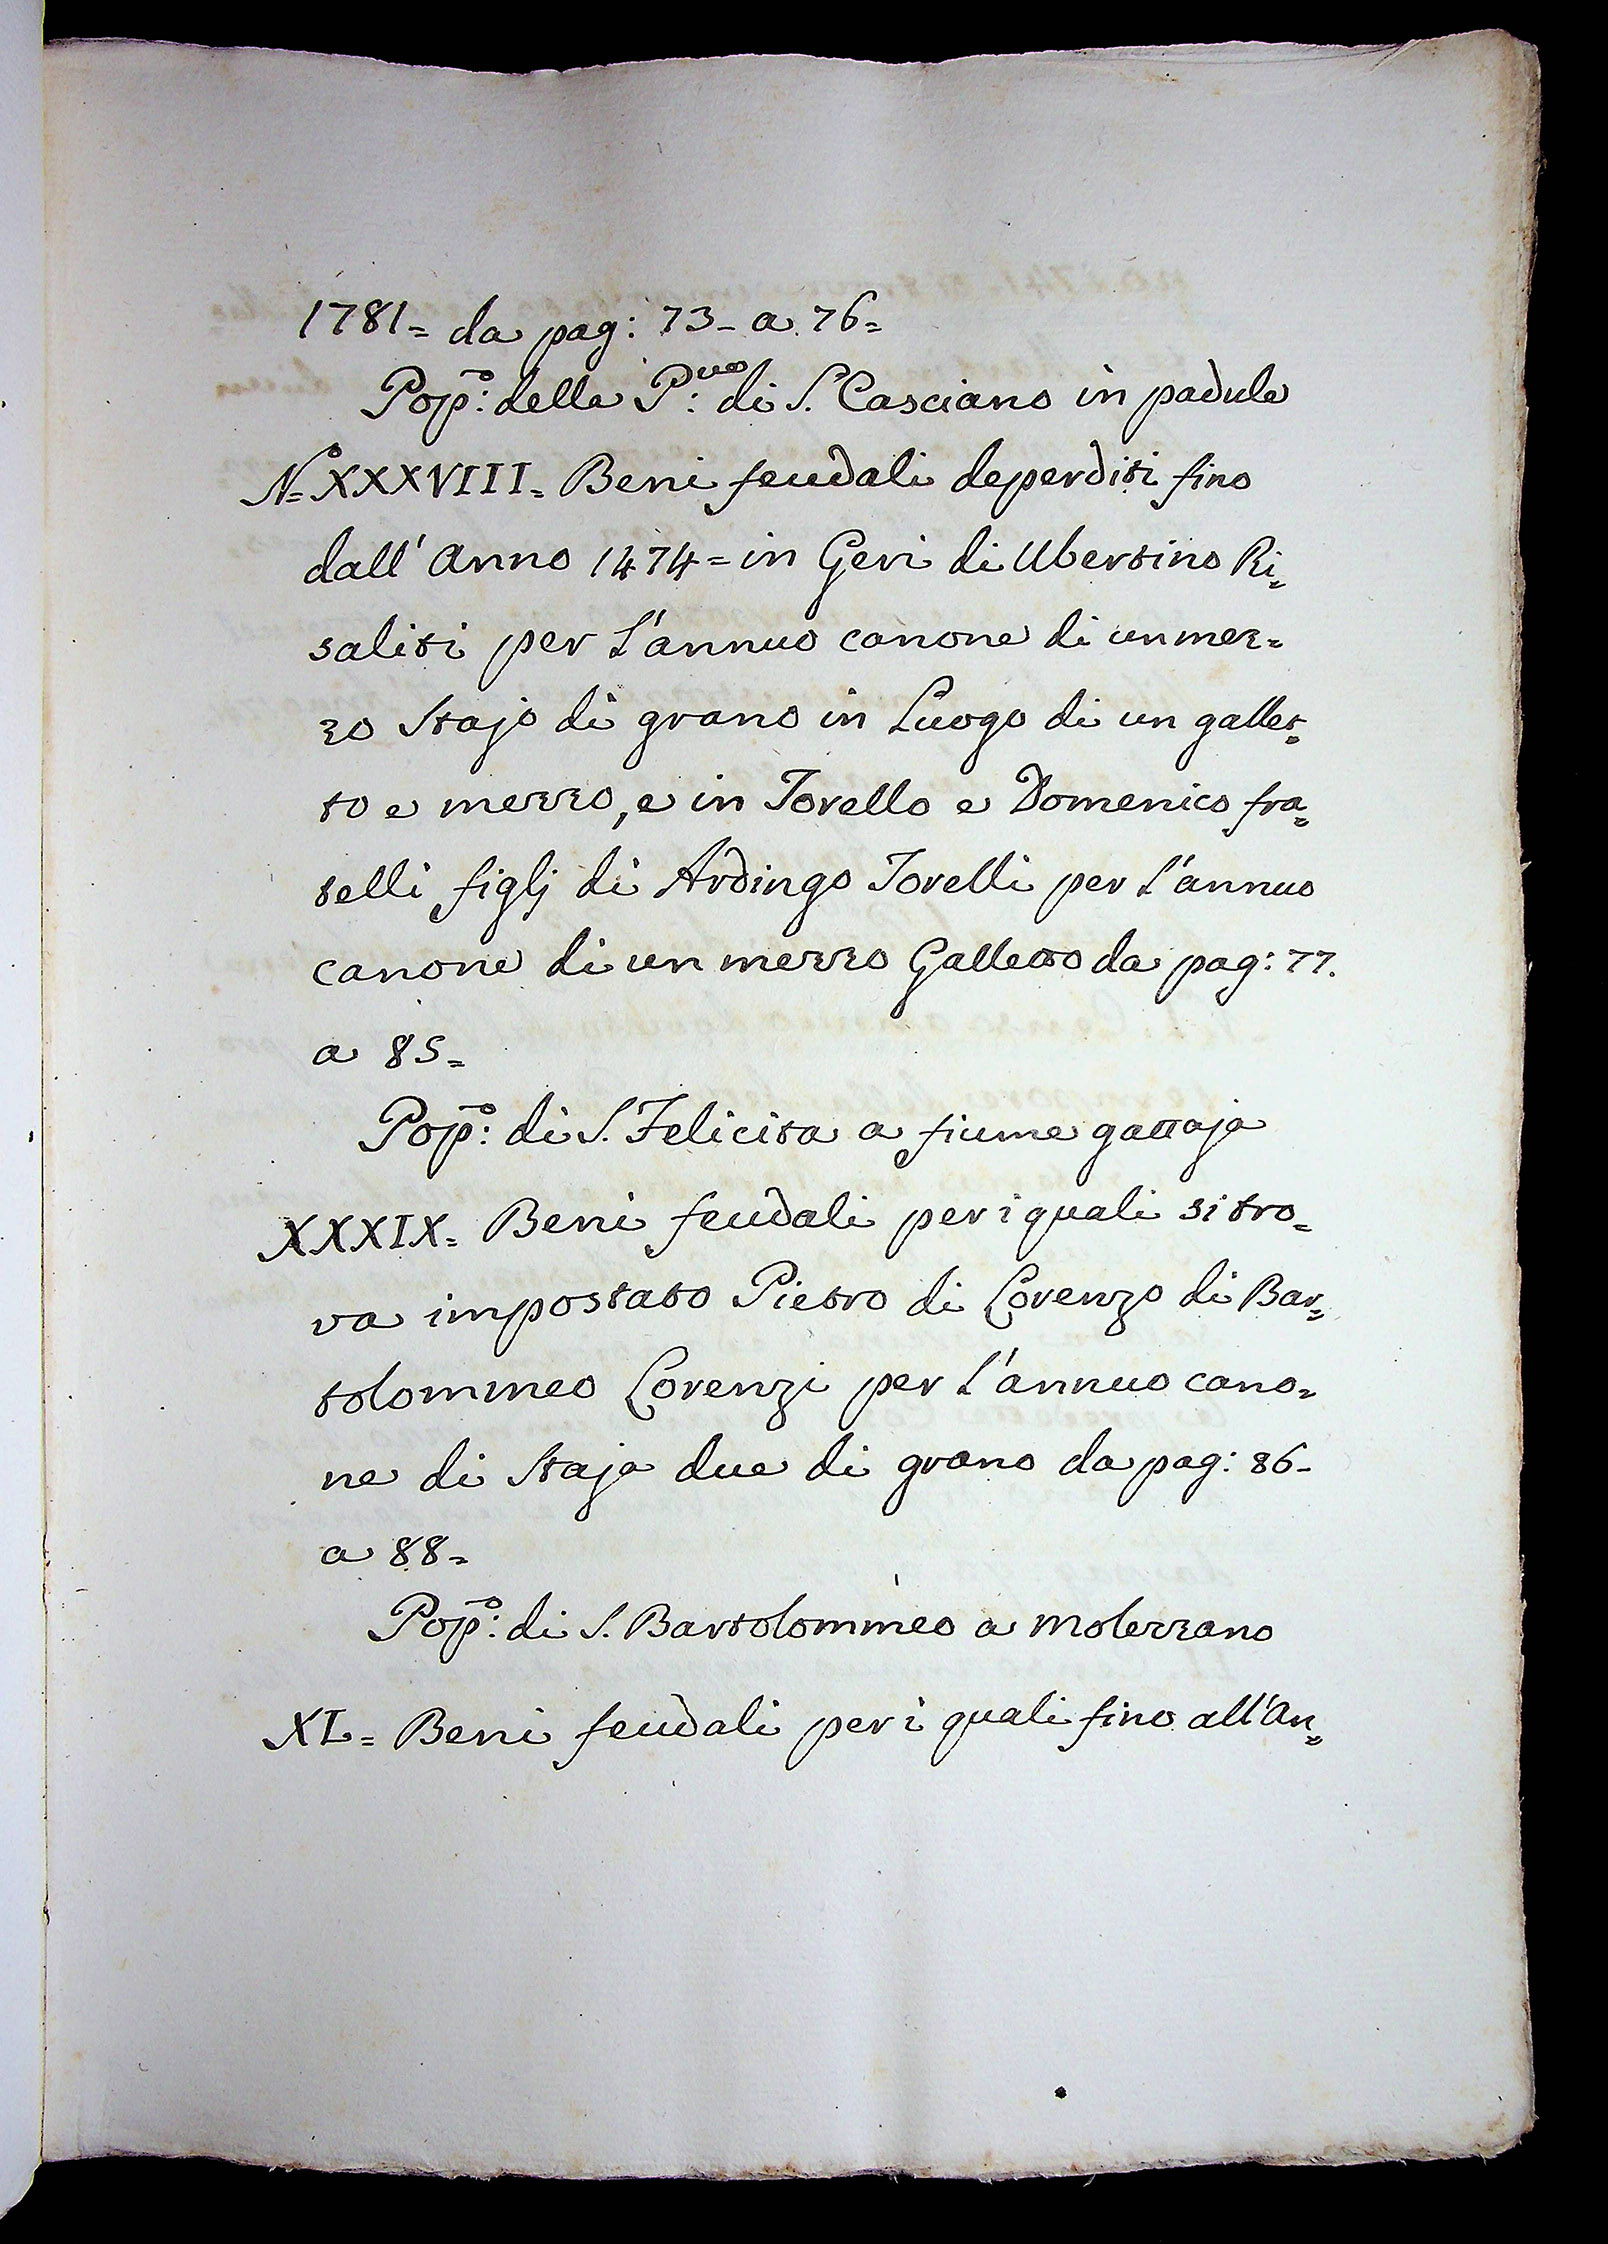 1781= da pag: 73- a 76=
Pop:º della P:ve di S. Casciano in padule
Nº= XXXVIII= Beni feudali deperditi fino
dall' Anno 1474= in Geri di Ubertino Ri=
saliti per l'annuo canone di un mez=
zo Stajo di grano in Luogo di un gallet=
to e mezzo, e in Torello e Domenico fra=
telli figlj di Ardingo Torelli per l'annuo
canone di un mezzo Galletto da pag: 77.
a 85=
Pop:º di S. Felicita a fiume gattaja
XXXIX= Beni feudali per i quali si tro=
va impostato Pietro di Lorenzo di Bar=
tolommeo Lorenzi per l'annuo cano=
ne di Staja due di grano da pag: 86-
a 88=
Pop:º di S. Bartolommeo a Molezzano
XL= Beni feudali per i quali fino all'An=